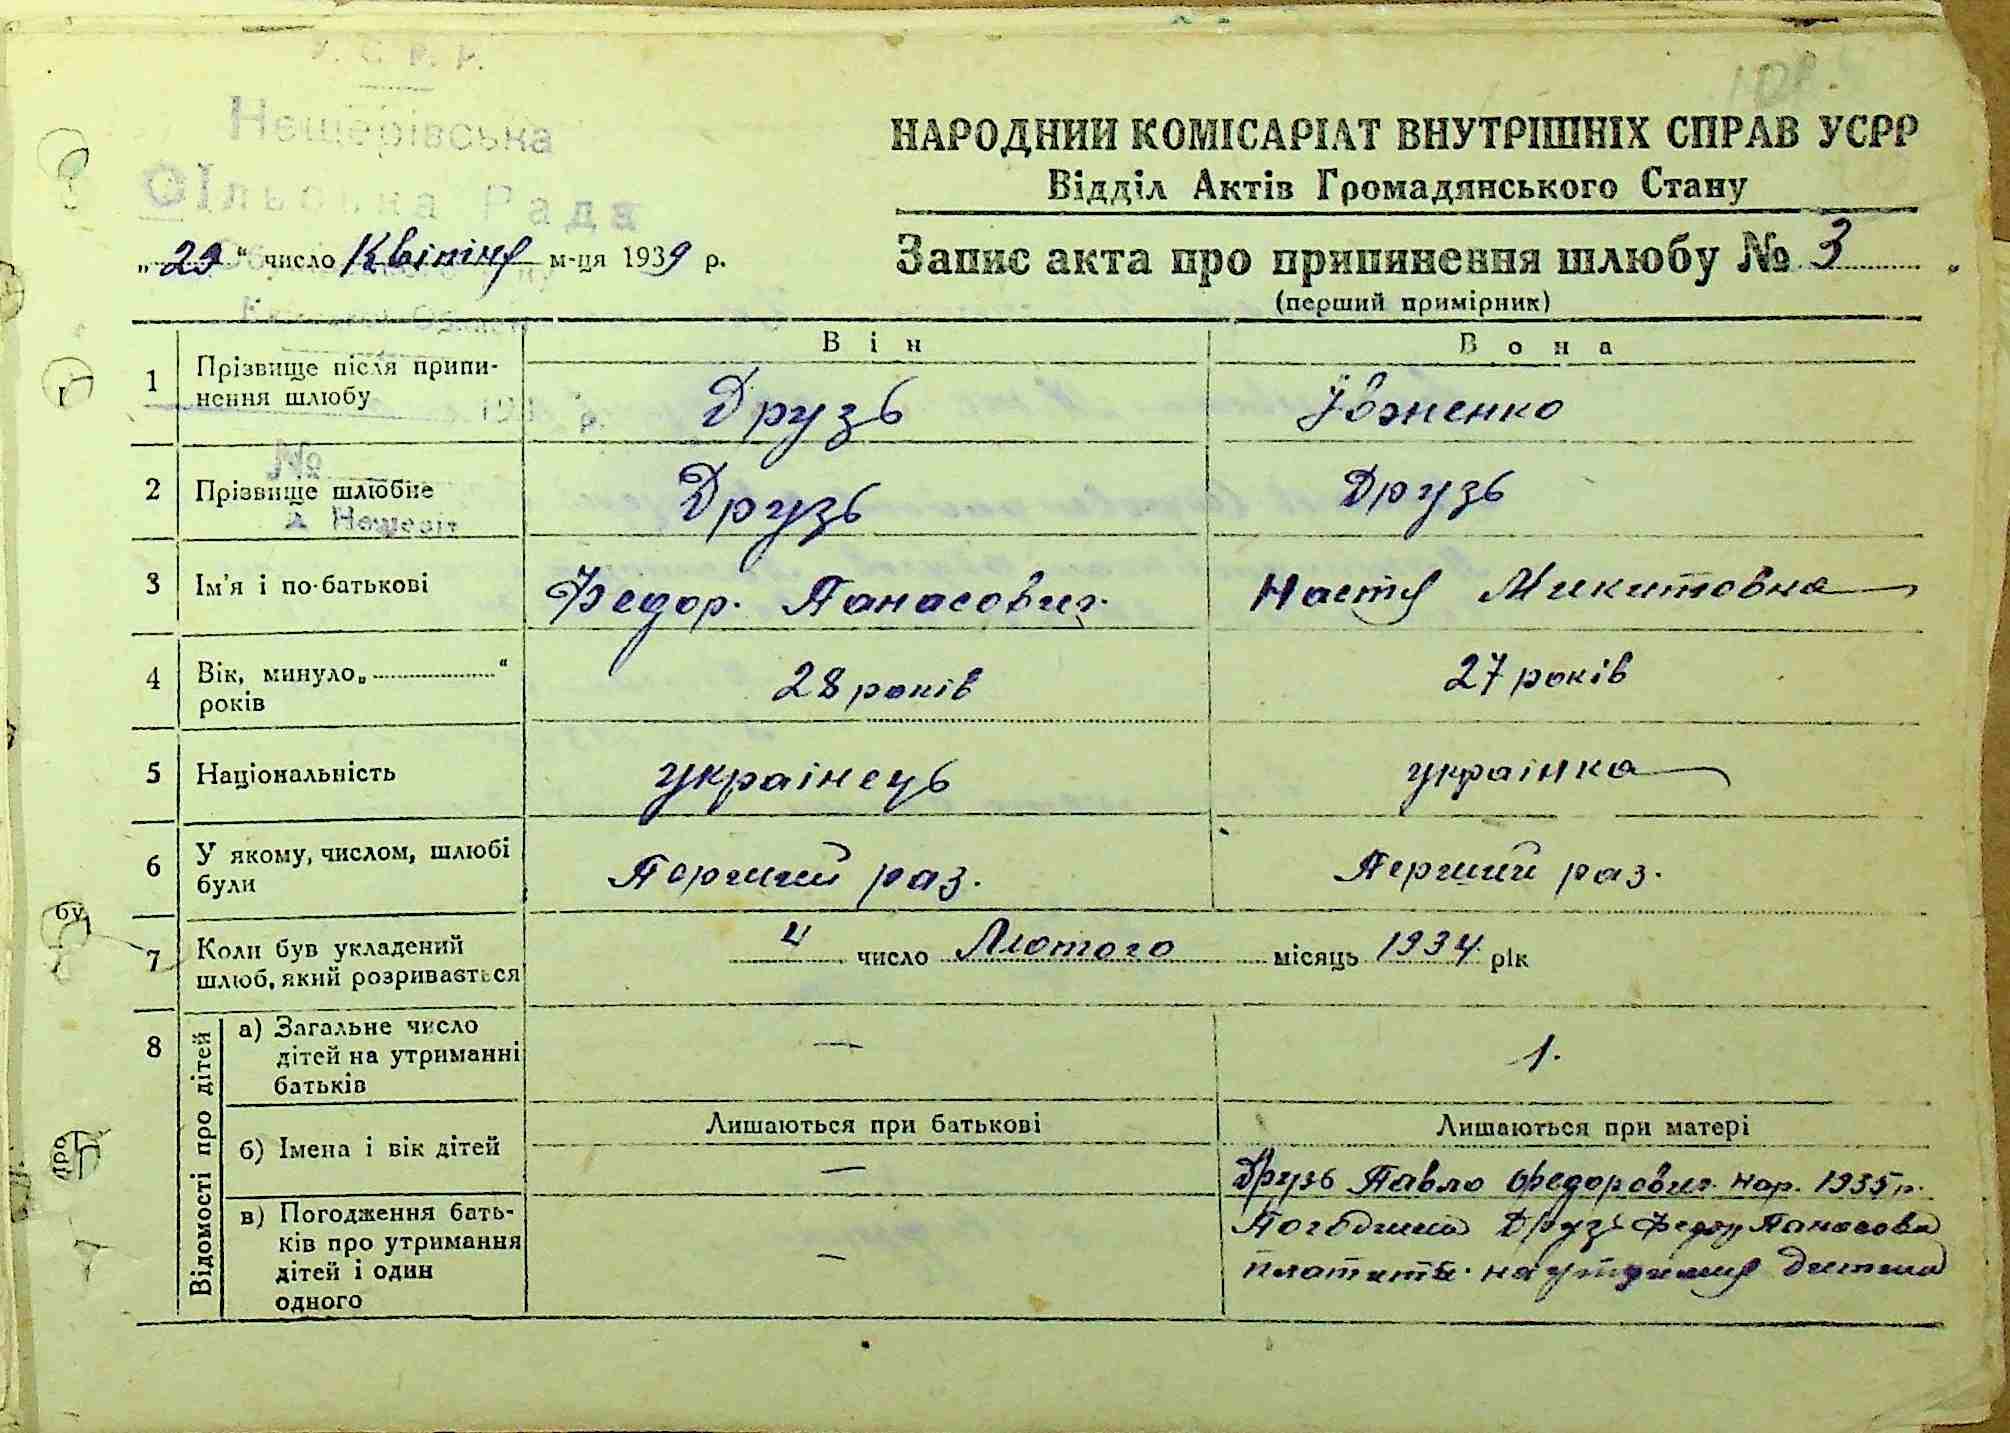 У. С. Р. Р.
Нещерівська
Сільська Рада
НАРОДНИЙ КОМІСАРІАТ ВНУТРІШНІХ СПРАВ УСРР
Відділ Актів Громадянського Стану
„29“ число Квітня м-ця 1939 р.
Запис акта про припинення шлюбу № 3
(перший примірник)
Він Вона
1 Прізвище після припи-
нення шлюбу Друзь Івженко
№
2 Прізвище шлюбне Друзь Друзь
3 Ім'я і по-батькові Федор. Панасович. Настя Микитовна
4 Вік, минуло „ “
років 28 років 27 років
5 Національність українець українка
6 У якому, числом, шлюбі
були Перший раз. Перший раз.
7 Коли був укладений
шлюб, який розривається 4 число Лютого місяць 1934 рік
8 Відомості про дітей
а) Загальне число
дітей на утриманні
батьків — 1.
Лишаються при батькові Лишаються при матері
б) Імена і вік дітей — Друзь Павло Федорович нар. 1935 р.
в) Погодження бать-
ків про утримання
дітей і один
одного —
Друзь Федор Панасова
платити на дитини